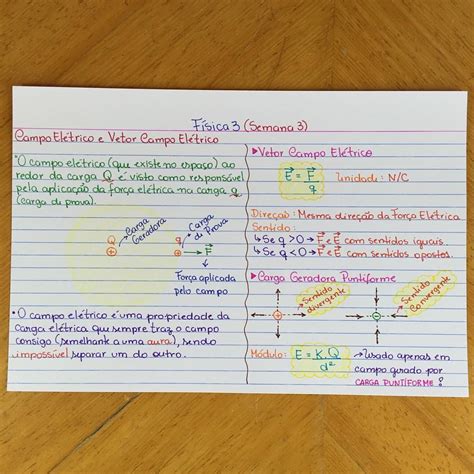 Física 3 (Semana 3)
Campo Elétrico e Vetor Campo Elétrico
• O campo elétrico (que existe no espaço) ao
redor da carga Q é visto como responsável
pela aplicação da força elétrica na carga q
(carga de prova).
Carga
Geradora
Carga
de Prova
Q
q
F
Força aplicada
pelo campo
• O campo elétrico é uma propriedade da
carga elétrica que sempre traz o campo
consigo (semelhante a uma aura), sendo
impossível separar um do outro.
▸Vetor Campo Elétrico
E = F/q
Unidade: N/C
Direção: Mesma direção da Força Elétrica
Sentido:
↳ Se q > 0 → F e E com sentidos iguais.
↳ Se q < 0 → F e E com sentidos opostos.
▸Carga Geradora Puntiforme
Sentido
divergente
Sentido
Convergente
Módulo: E = K.Q/d²
→Usado apenas em
campo gerado por
CARGA PUNTIFORME!